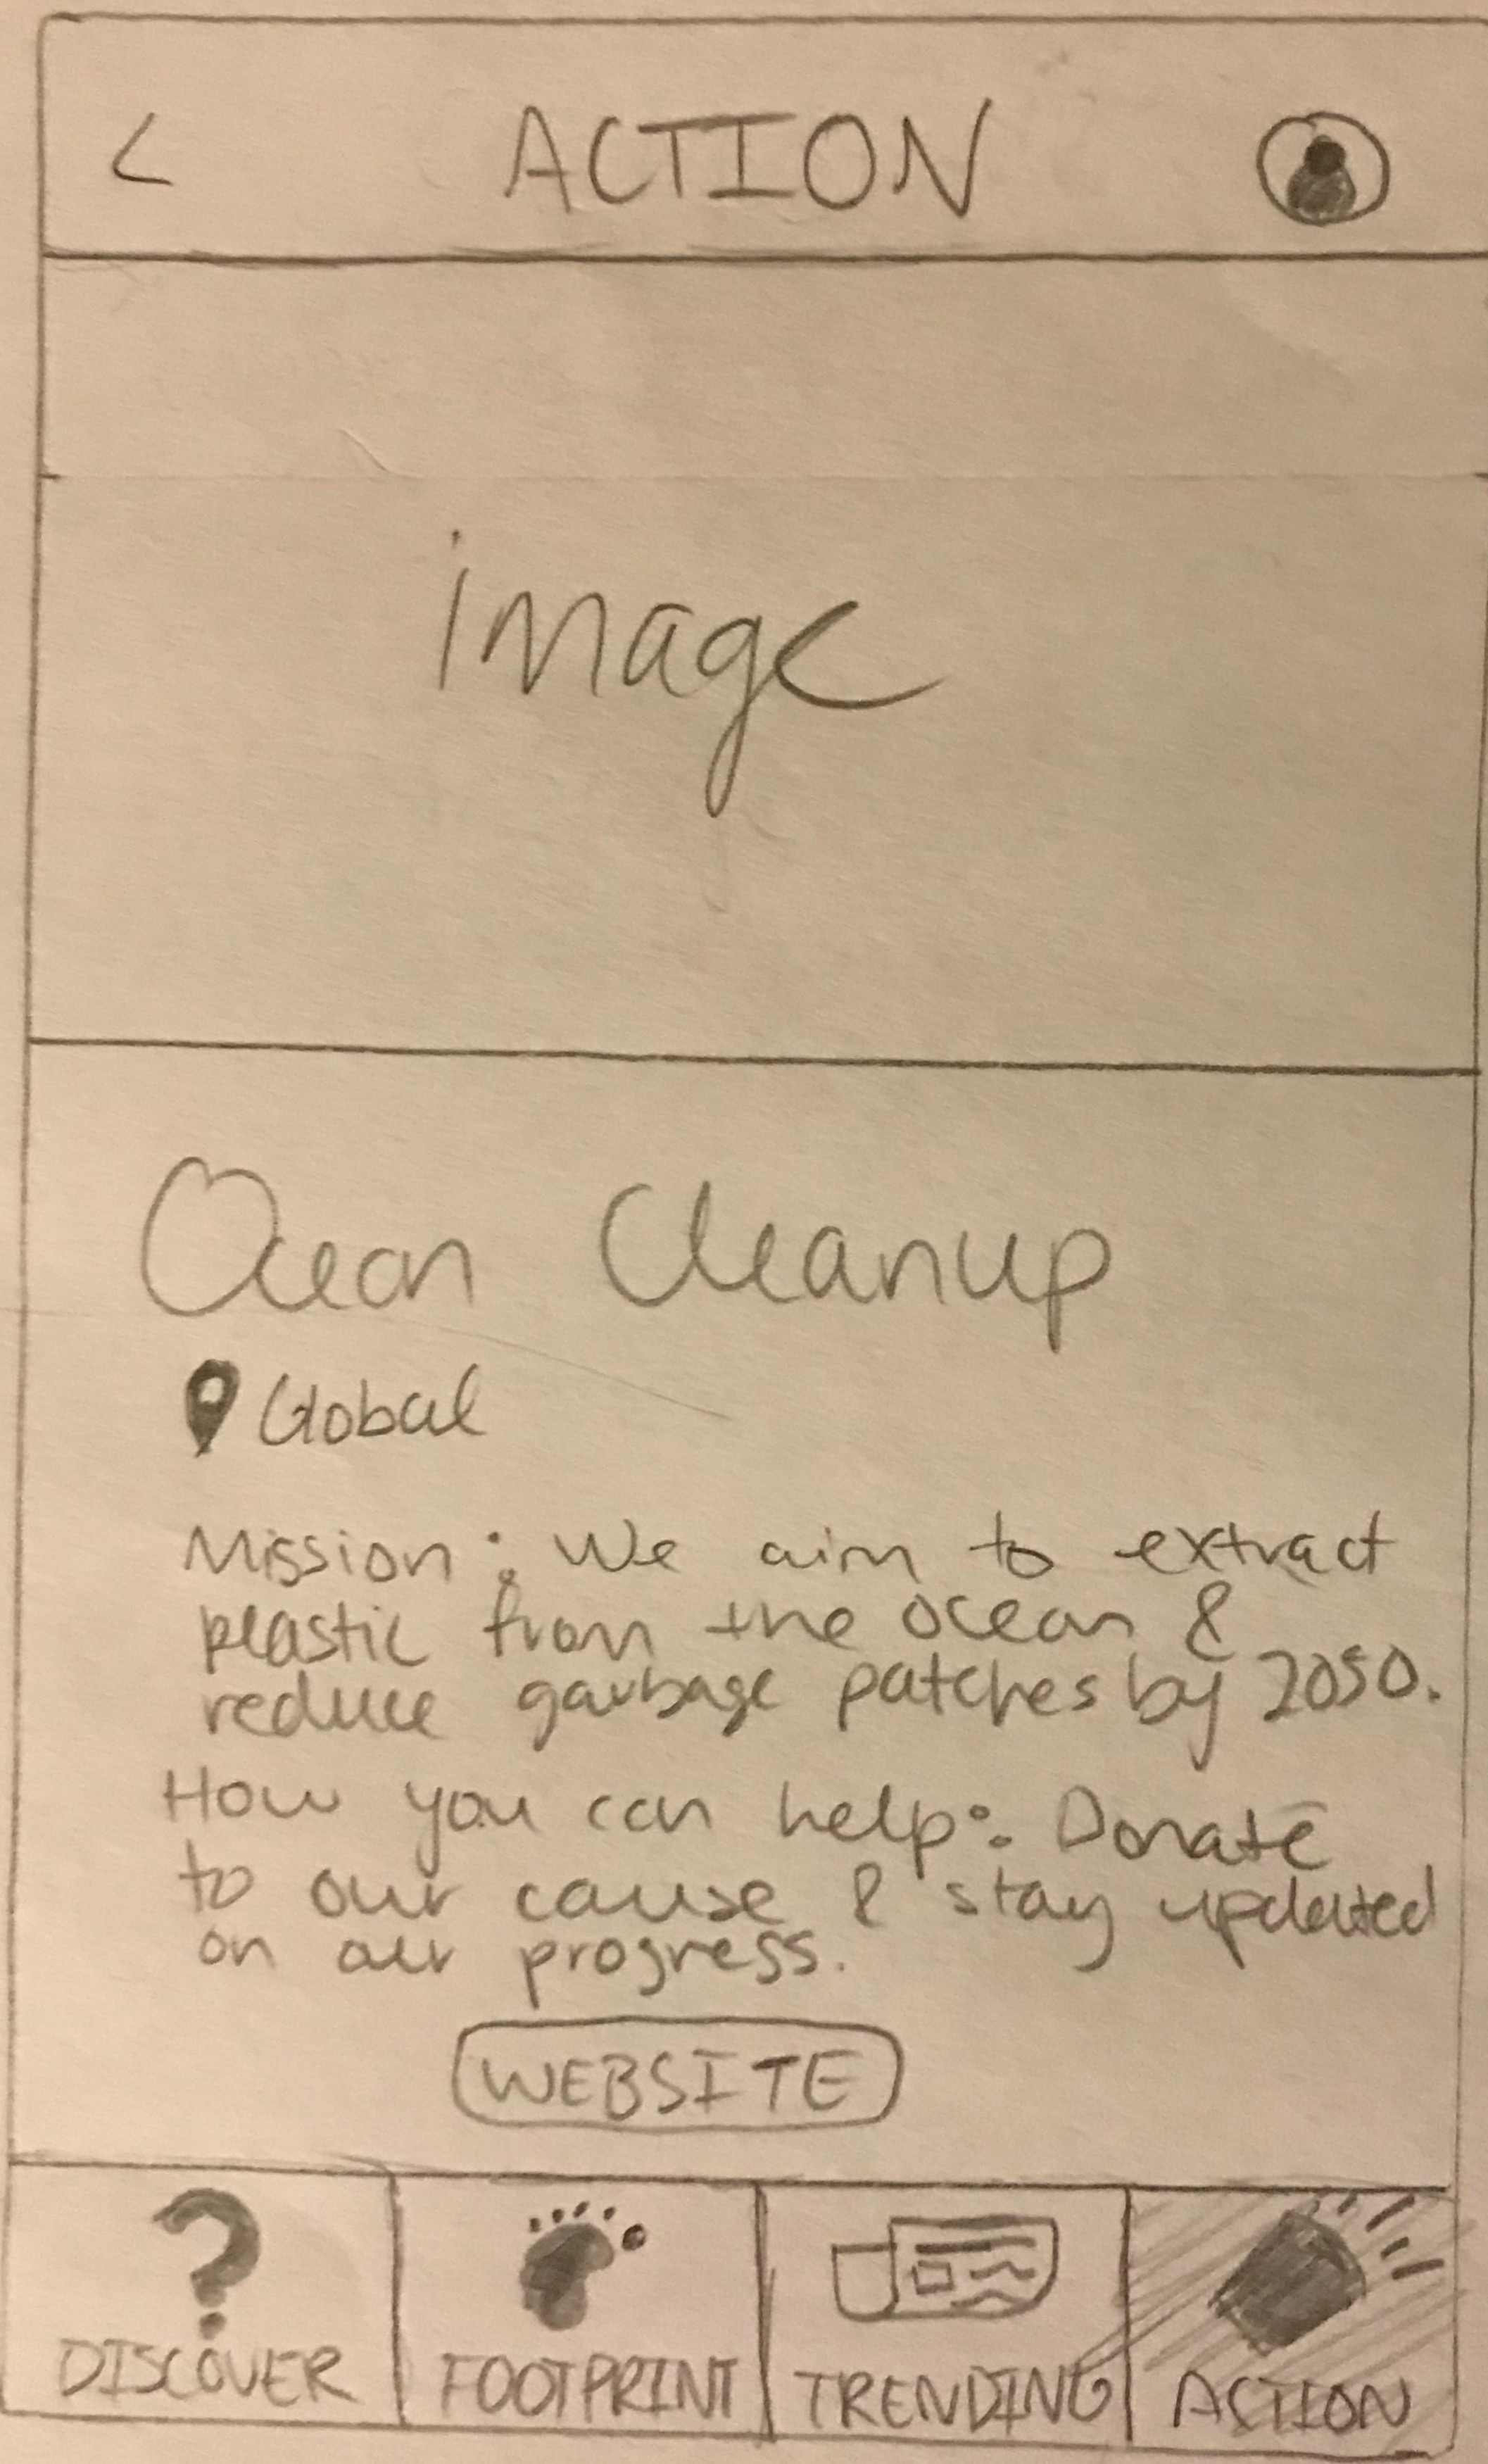 < ACTION
image
Ocean Cleanup
Global
Mission: We aim to extract
plastic from the ocean &
reduce garbage patches by 2050.
How you can help: Donate
to our cause & stay updated
on our progress.
WEBSITE
? 
DISCOVER FOOTPRINT TRENDING ACTION